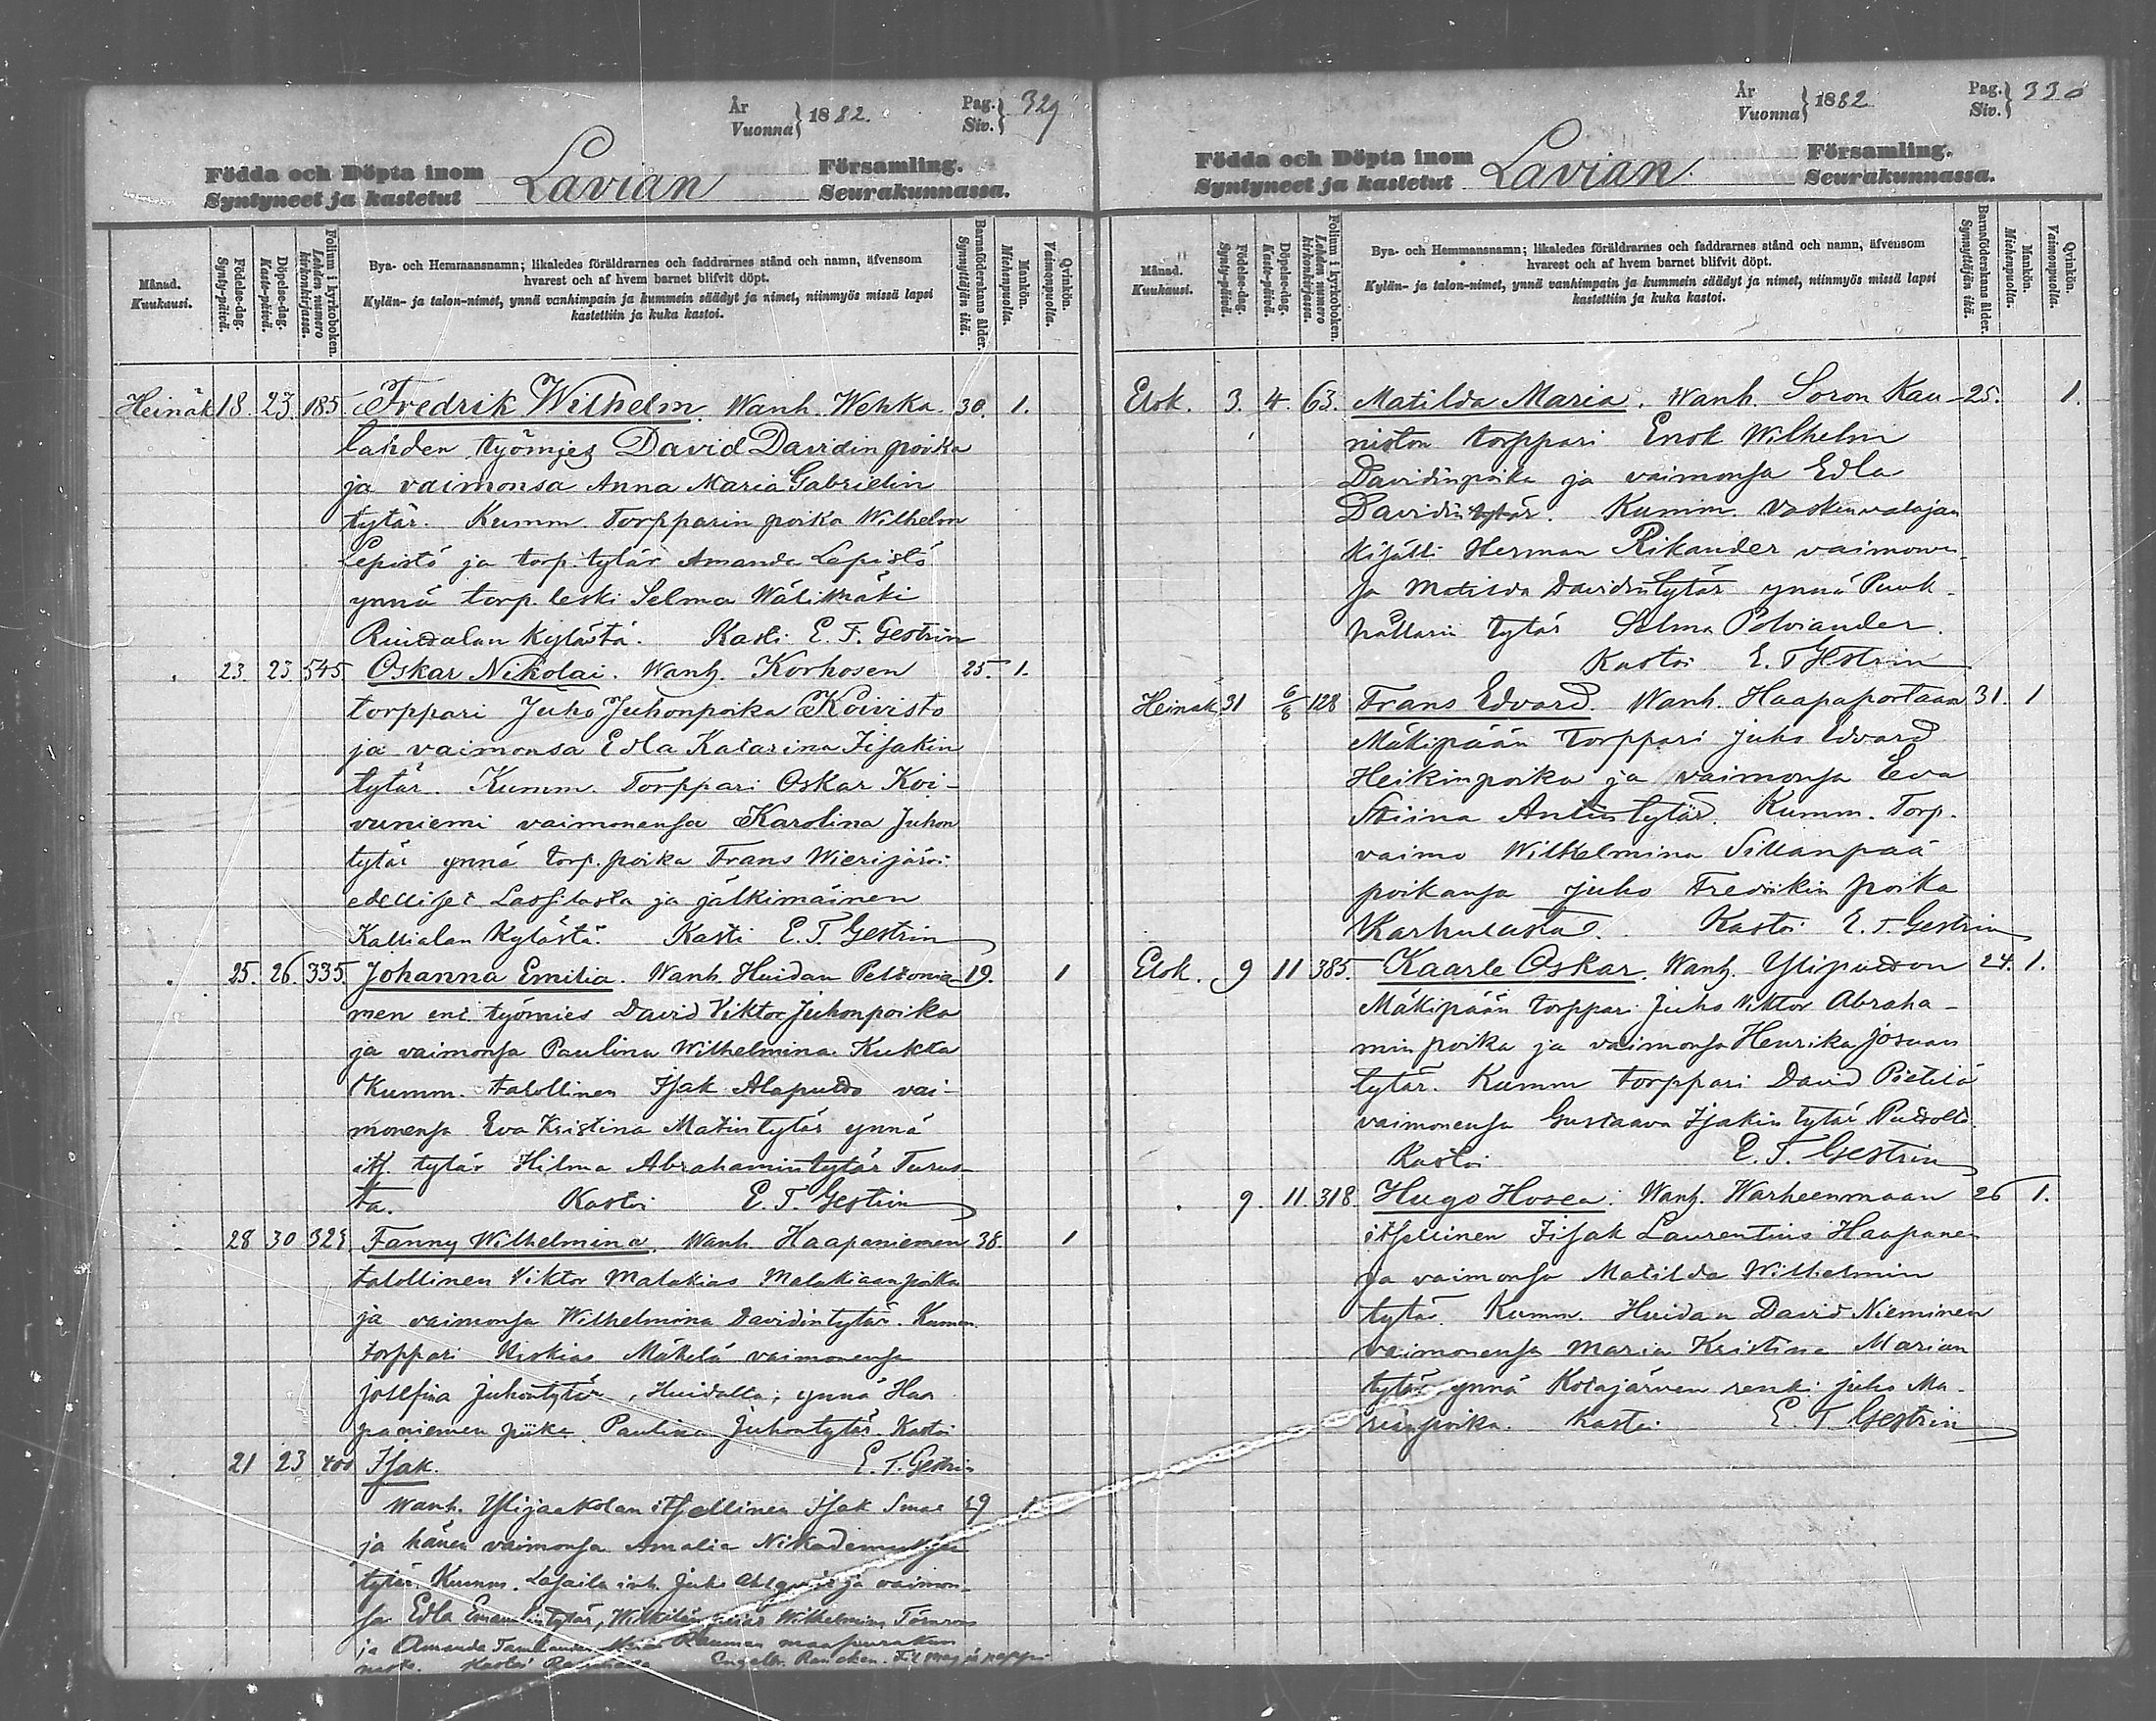 År
Vuonna } 1882.
Pag.
Siv. } 329
Födda och Döpta inom
Syntyneet ja kastetut
Lavian
Församling.
Seurakunnassa.
Månad.
Kuukausi.
Födelse-dag.
Synty-päivä.
Döpelse-dag.
Kaste-päivä.
Folium i kyrkoboken.
Lehden numero
kirkonkirjassa.
Bya- och Hemmansnamn; likaledes föräldrarnes och faddrarnes stånd och namn, äfvensom
hvarest och af hvem barnet blifvit döpt.
Kylän- ja talon-nimet, ynnä vanhimpain ja kummein säädyt ja nimet, niinmyös missä lapsi
kastettiin ja kuka kastoi.
Barnaföderskans ålder.
Synnyttäjän ikä.
Mankön.
Miehenpuolia.
Qvinkön.
Vaimonpuolia.
Heinäk 18. 23. 185 Fredrik Wilhelm. Wanh. Wehka 30. 1.
lahden työmies David Davidin poika
ja vaimonsa Anna Maria Gabrielin
tytär. Kumm. Torpparin poika Wilhelm
Lepistö ja torp. tytär Amanda Lepistö
ynnä torp. leski Selma Wälimäki
Riuttalan kylästä. Kasti E. T. Gestrin
23. 23 545 Oskar Nikolai. Wanh. Korhosen 25. 1.
torppari Juho Juhonpoika Koivisto
ja vaimonsa Edla Katarina Iisakin
tytär. Kumm. Torppari Oskar Koi-
vuniemi vaimonensa Karolina Juhon
tytär ynnä torp. poika Frans Wierijärvi
edelliset Lassilasta ja jälkimäinen
Kallialan kylästä. Kasti E. T. Gestrin
25. 26. 335. Johanna Emilia. Wanh. Huidan Peltonie- 19. 1
men ent. työmies David Viktor Juhonpoika
ja vaimonsa Paulina Wilhelmina Kukka
Kumm. talollinen Isak Alaputto vai-
monensa Eva Kristina Matintytär ynnä
its. tytär Hilma Abrahamintytär Turus-
ta. Kastoi E. T. Gestrin
28 30 329 Fanny Wilhelmina. Wanh. Haapaniemen 38. 1
talollinen Viktor Malakias Malakiaanpoika
ja vaimonsa Wilhelmina Davidintytär. Kumm.
torppari Hiskias Mäkelä vaimonensa
Josefina Juhontytär, Huidalta; ynnä Haa
paniemen piika Paulina Juhontytär. Kastoi
21 23 400 Isak. E. T. Gestrin
Wanh. Ylijaakolan itsellinen Isak 29 1
ja hänen vaimonsa Amalia Nikademuksen
tytär. Kumm. Juho Ahlqvist ja vaimon-
sa Edla Emanuelintytär, Wilhelmina Törnroos
ja Amanda Rauman maaseurakun
nasta. Kastoi
År
Vuonna } 1882
Pag.
Siv. } 330
Födda och Döpta inom
Syntyneet ja kastetut
Lavian
Församling.
Seurakunnassa.
Månad.
Kuukausi.
Födelse-dag.
Synty-päivä.
Döpelse-dag.
Kaste-päivä.
Folium i kyrkoboken.
Lehden numero
kirkonkirjassa.
Bya- och Hemmansnamn; likaledes föräldrarnes och faddrarnes stånd och namn, äfvensom
hvarest och af hvem barnet blifvit döpt.
Kylän- ja talon-nimet, ynnä vanhimpain ja kummein säädyt ja nimet, niinmyös missä lapsi
kastettiin ja kuka kastoi.
Barnaföderskans ålder.
Synnyttäjän ikä.
Mankön.
Miehenpuolia.
Qvinkön.
Vaimonpuolia.
Elok. 3. 4. 63. Matilda Maria. Wanh. Soron Kau- 25. 1.
niston torppari Enok Wilhelm
Davidinpoika ja vaimonsa Edla
Davidintytär. Kumm. Vaskenvalajan
kisälli Herman Rikander vaimonen-
sa Matilda Davidintytär ynnä Puuk-
hollarin tytär Selma Polviander.
Kastoi E. T Gestrin
Heinäk 31 6/8 128 Frans Edvard. Wanh. Haapaportaan 31. 1
Mäkipään torppari Juho Edvard
Heikinpoika ja vaimonsa Eva
Stiina Antintytär. Kumm. Torp.
vaimo Wilhelmina Sillanpää
poikansa Juho Fredrikin poika
Karhulasta. Kastoi E. T. Gestrin
Elok. 9 11 385. Kaarle Oskar. Wanh. Yliputon 24. 1.
Mäkipään torppari Juho Viktor Abraha-
min poika ja vaimonsa Henrika Josuan
tytär. Kumm torppari David Pietilä
vaimonensa Gustaava Isakintytär Putolta.
Kastoi E. T. Gestrin
9. 11. 318. Hugo Hosea. Wanh. Warheenmaan 26 1.
itsellinen Iisak Laurentius Haapanen
ja vaimonsa Matilda Wilhelmin
tytär. Kumm. Huidan David Nieminen
vaimonensa Maria Kristina Marian
tytär ynnä Kotajärven renki Juho Ma-
rianpoika. Kastoi E. T. Gestrin